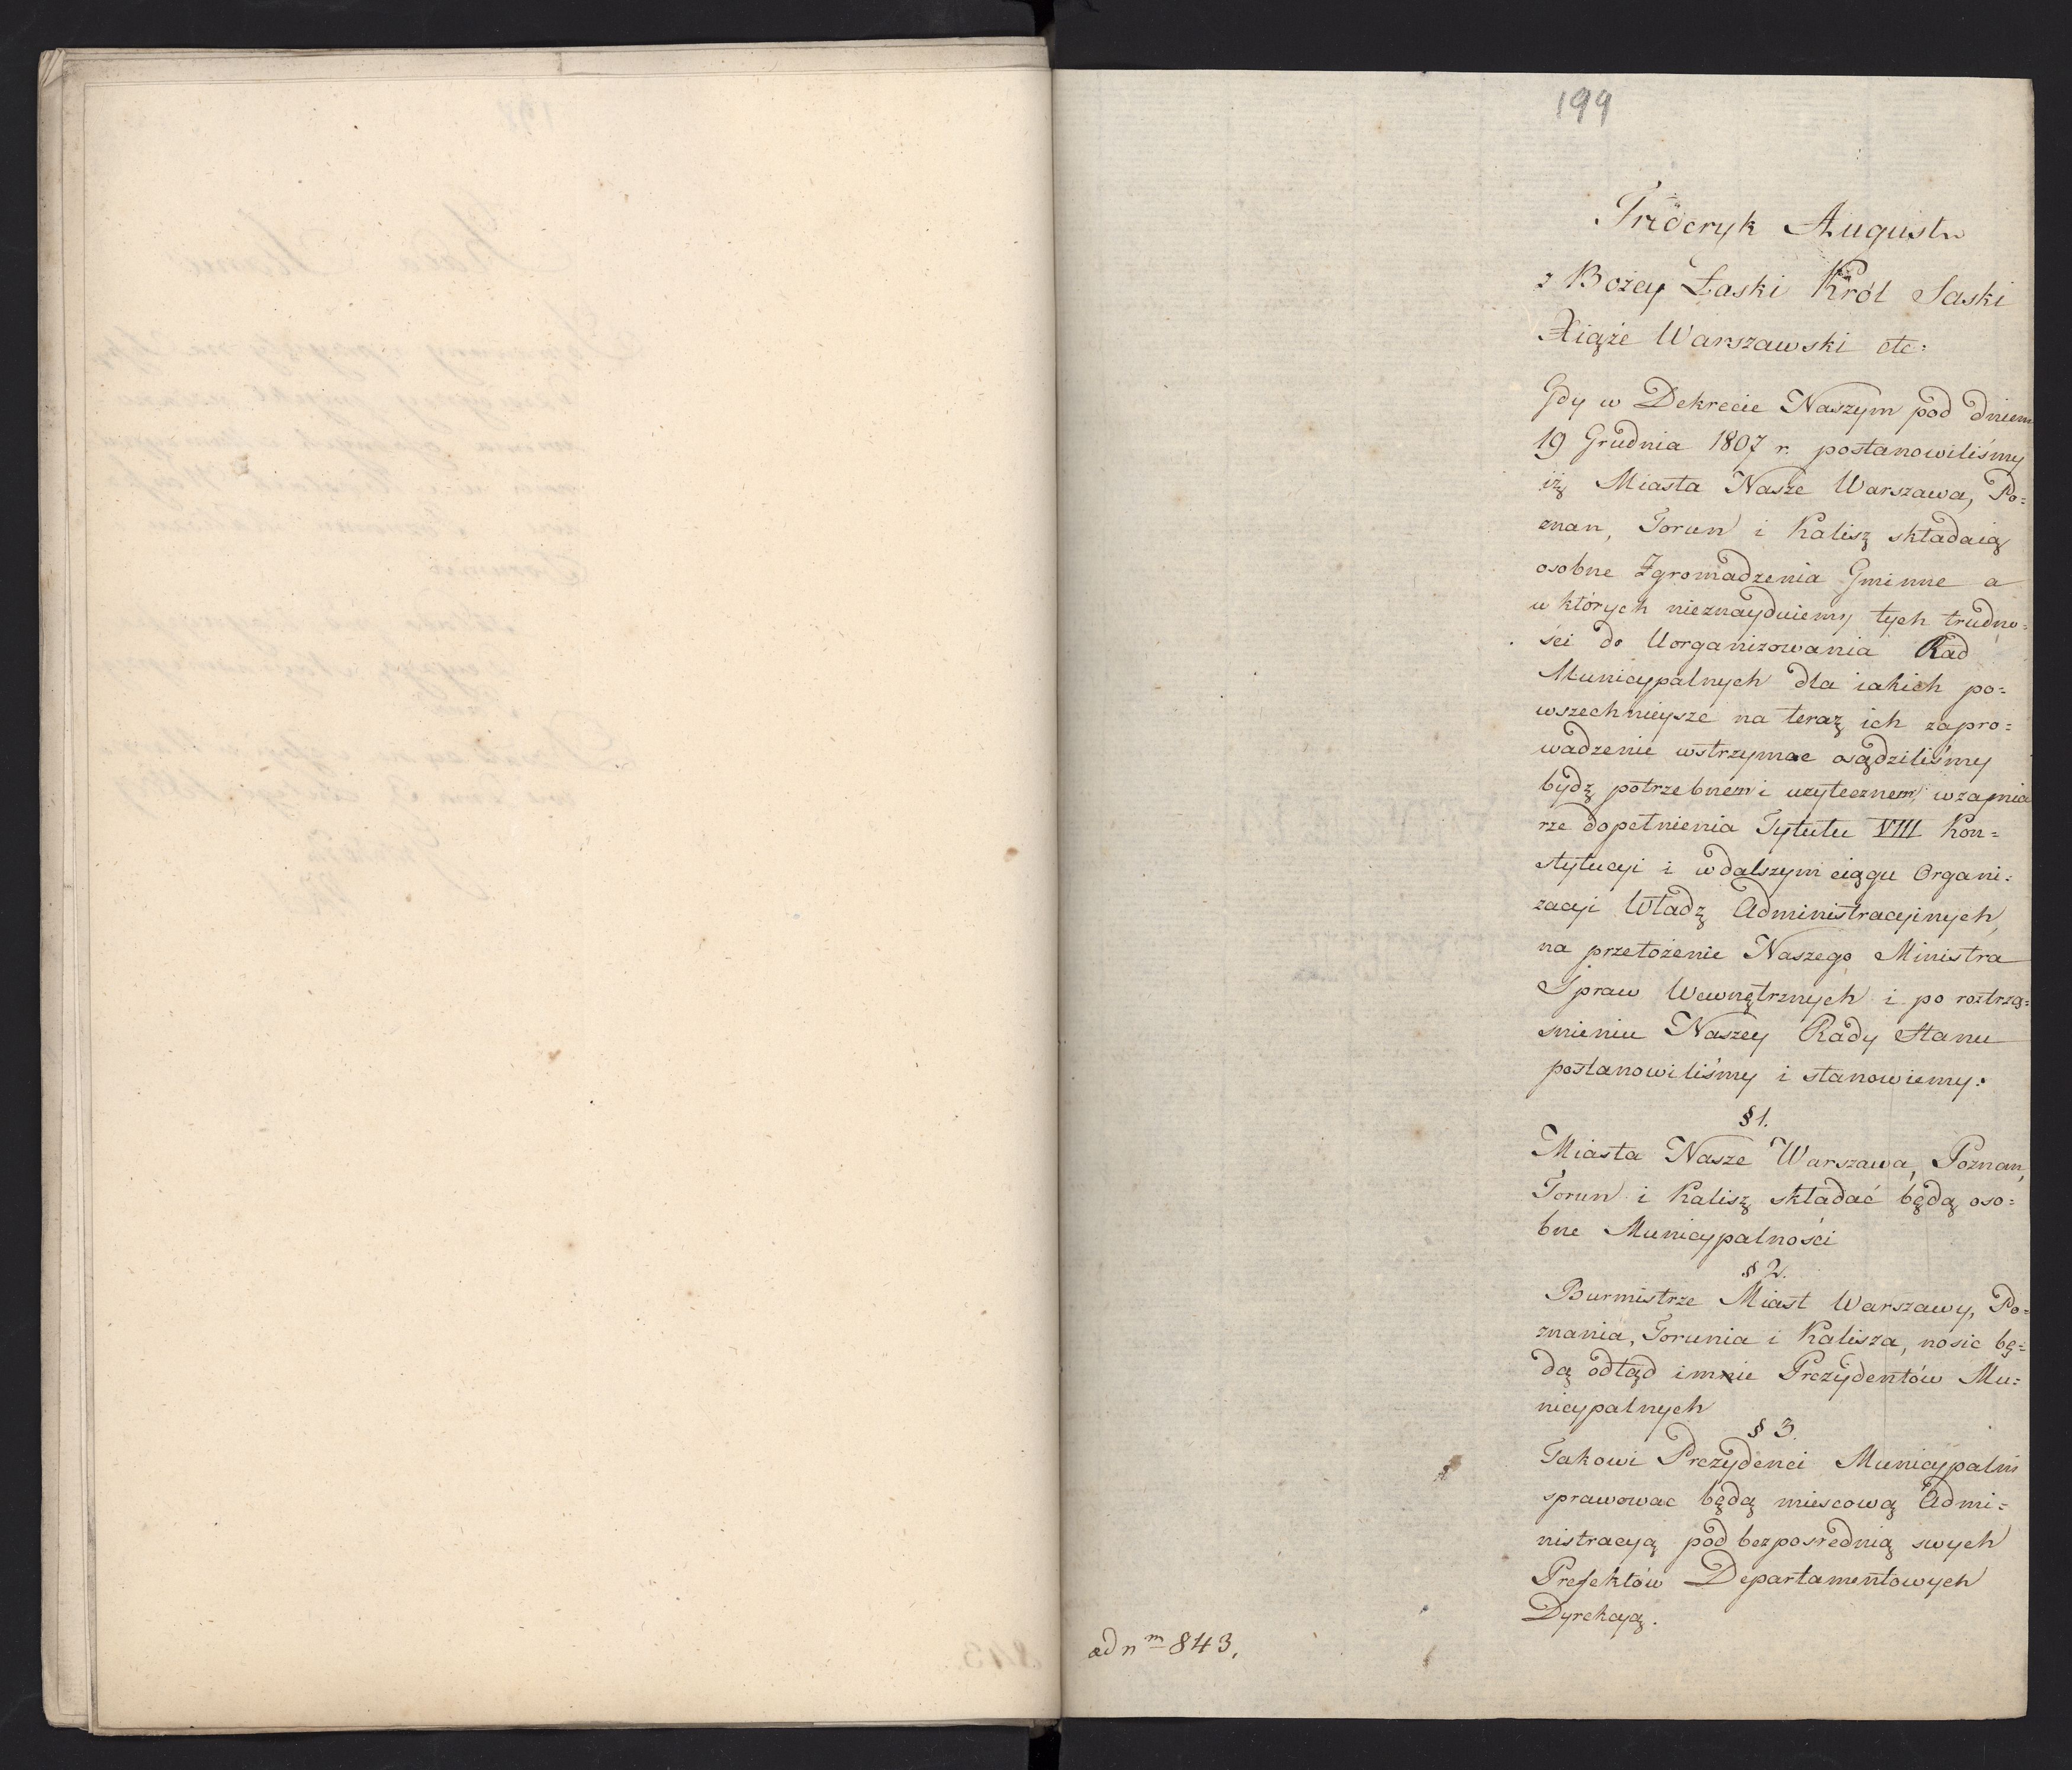 199
Frideryk August
z Bożey Łaski Król Saski
Xiąże Warszawski etc:
Gdy w Dekrecie Naszym pod dniem
19 Grudnia 1807 r. postanowiliśmy
iż Miasta Nasze Warszawa, Po=
znan, Torun i Kalisz składaią
osobne Zgromadzenia Gminne a
w których nieznayduiemy tych trudno=
ści do Uorganizowania Rad
Municypalnych dla iakich po=
wszechnieysze na teraz ich zapro=
wadzenie wstrzymac osądziliśmy
bydz potrzebnem i uzytecznem, wzamia
rze dopełnienia Tytułu VIII Kon=
stytucyi i wdalszym ciągu Organi=
zacyi Władz Administracyinych,
na przełożenie Naszego Ministra
Spraw Wewnętrznych i po roztrzą=
snieniu Naszey Rady Stanu
postanowiliśmy i stanowiemy:
§ 1.
Miasta Nasze Warszawa, Poznan,
Torun i Kalisz składać będą oso=
bne Municypalności
§ 2.
Burmistrze Miast Warszawy, Po=
znania, Torunia i Kalisza, nosic bę=
dą odtąd imnie Prezydentów Mu=
nicypalnych
§ 3.
Takowi Prezydenci Municypalni
sprawowac będą miescową Admi=
nistracyą pod bezposrednią swych
Prefektów Departamentowych
Dyrekcyą.
ad nm 843.